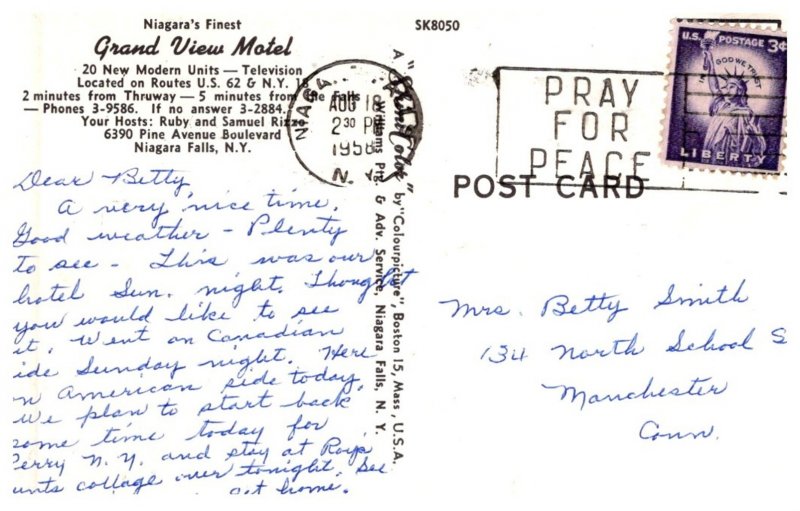 Niagara's Finest
Grand View Motel
20 New Modern Units — Television
Located on Routes U.S. 62 & N.Y. 18
2 minutes from Thruway — 5 minutes from the Falls
— Phones 3-9586. If no answer 3-2884.
Your Hosts: Ruby and Samuel Rizzo
6390 Pine Avenue Boulevard
Niagara Falls, N.Y.
SK8050
NIAGA
AUG 18
2 30 P
1958
N. Y.
PRAY
FOR
PEACE
U.S. POSTAGE 3¢
IN GOD WE TRUST
LIBERTY
POST CARD
A "ShiniColor" by "Colourpicture", Boston 15, Mass., U.S.A.
Williams Ptg. & Adv. Service, Niagara Falls, N. Y.
Dear Betty
A very nice time.
Good weather – Plenty
to see – This was our
hotel Sun. night. Thought
you would like to see
it. Went on Canadian
ide Sunday night. Here
n American side today.
We plan to start back
some time today for
Perry N.Y. and stay at
unts cottage over tonight. See
at home.
Mrs. Betty Smith
134 North School S
Manchester
Conn.